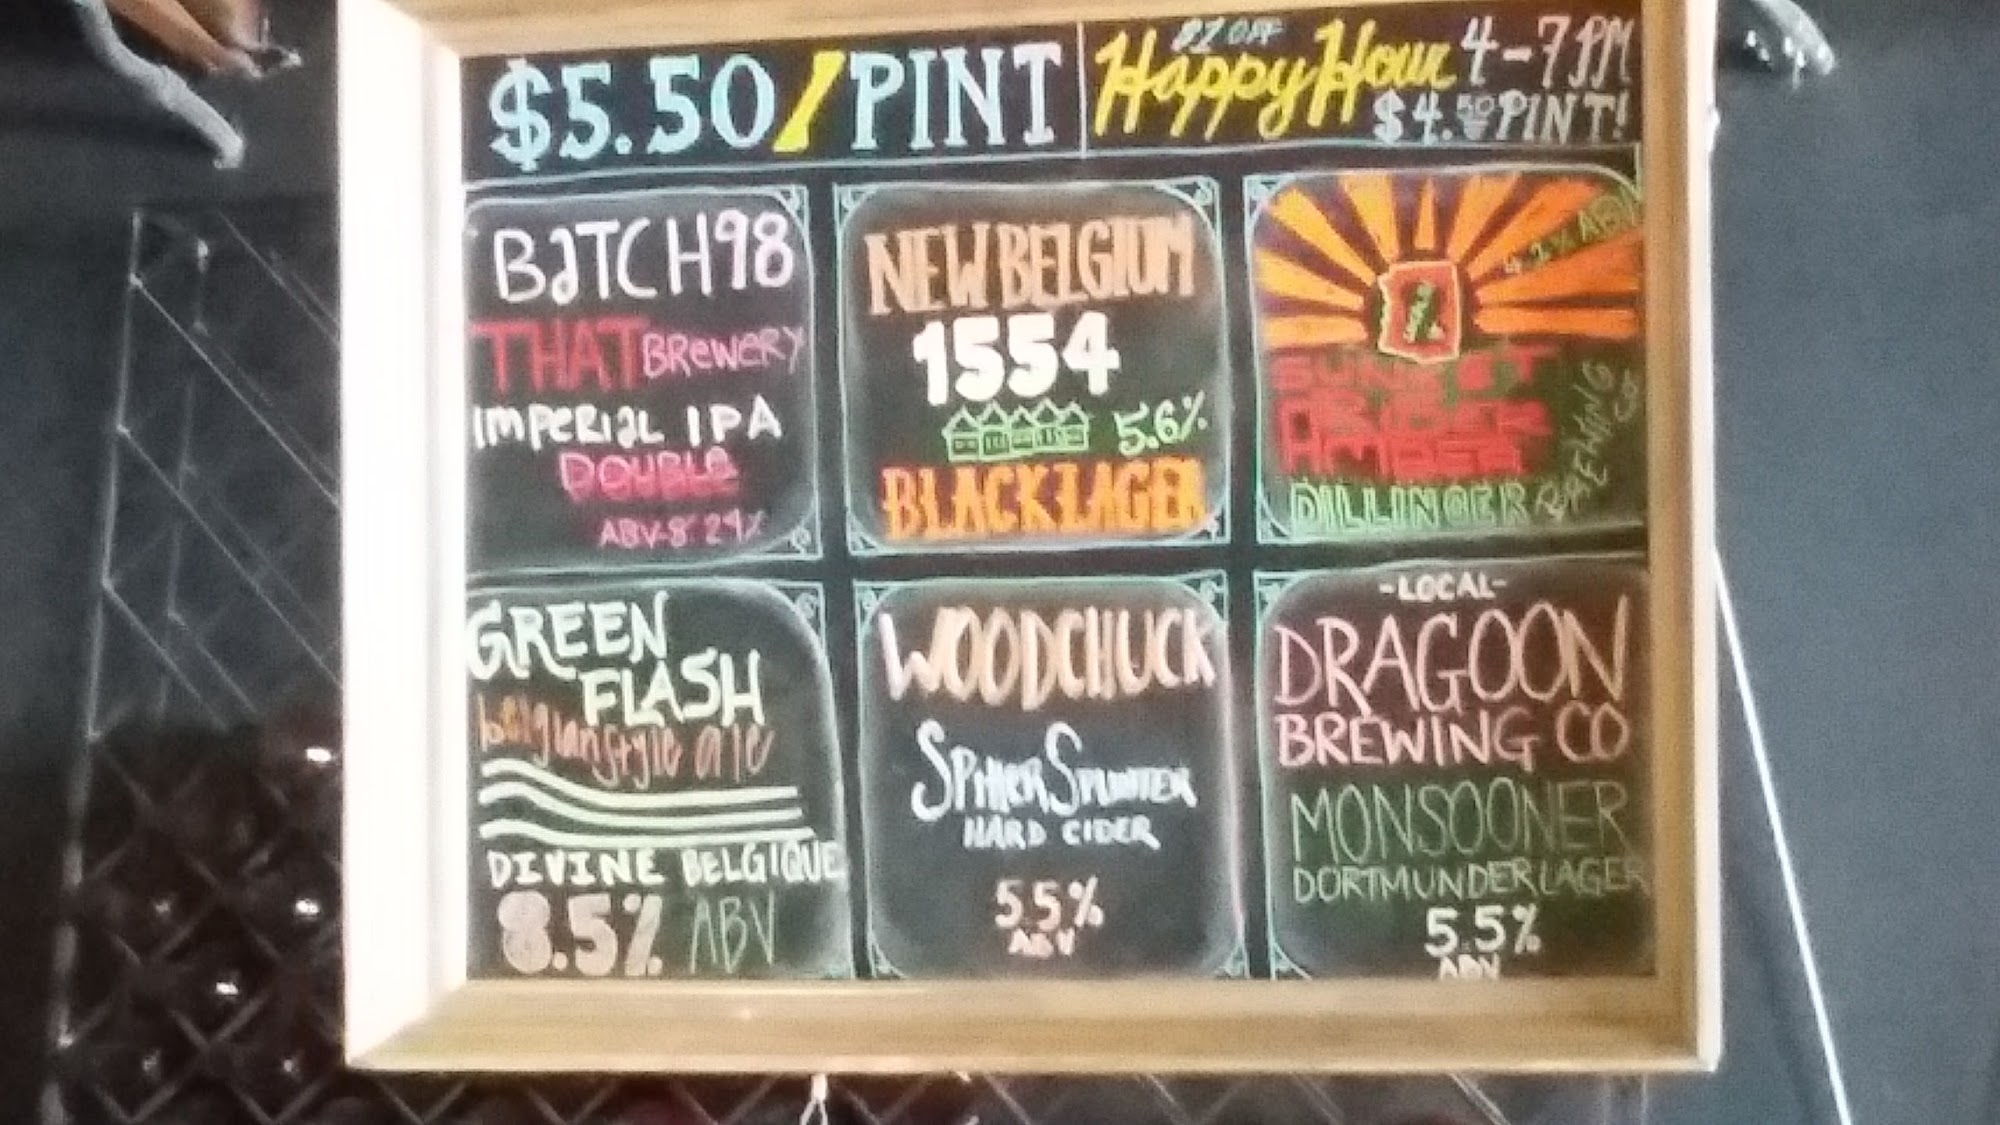 $5.50/PINT
$1 OFF
Happy Hour 4-7PM
$4.50 PINT!
BATCH 98
THAT BREWERY
IMPERIAL IPA
DOUBLE
ABV-8.29%
NEW BELGIUM
1554
5.6%
BLACK LAGER
ABV
SUNSET
AMBER
DILLINGER BREWING CO
GREEN
FLASH
belgian style ale
DIVINE BELGIQUE
8.5% ABV
WOODCHUCK
HARD CIDER
5.5%
ABV
-LOCAL-
DRAGOON
BREWING CO
MONSOONER
DORTMUNDER LAGER
5.5%
ABV